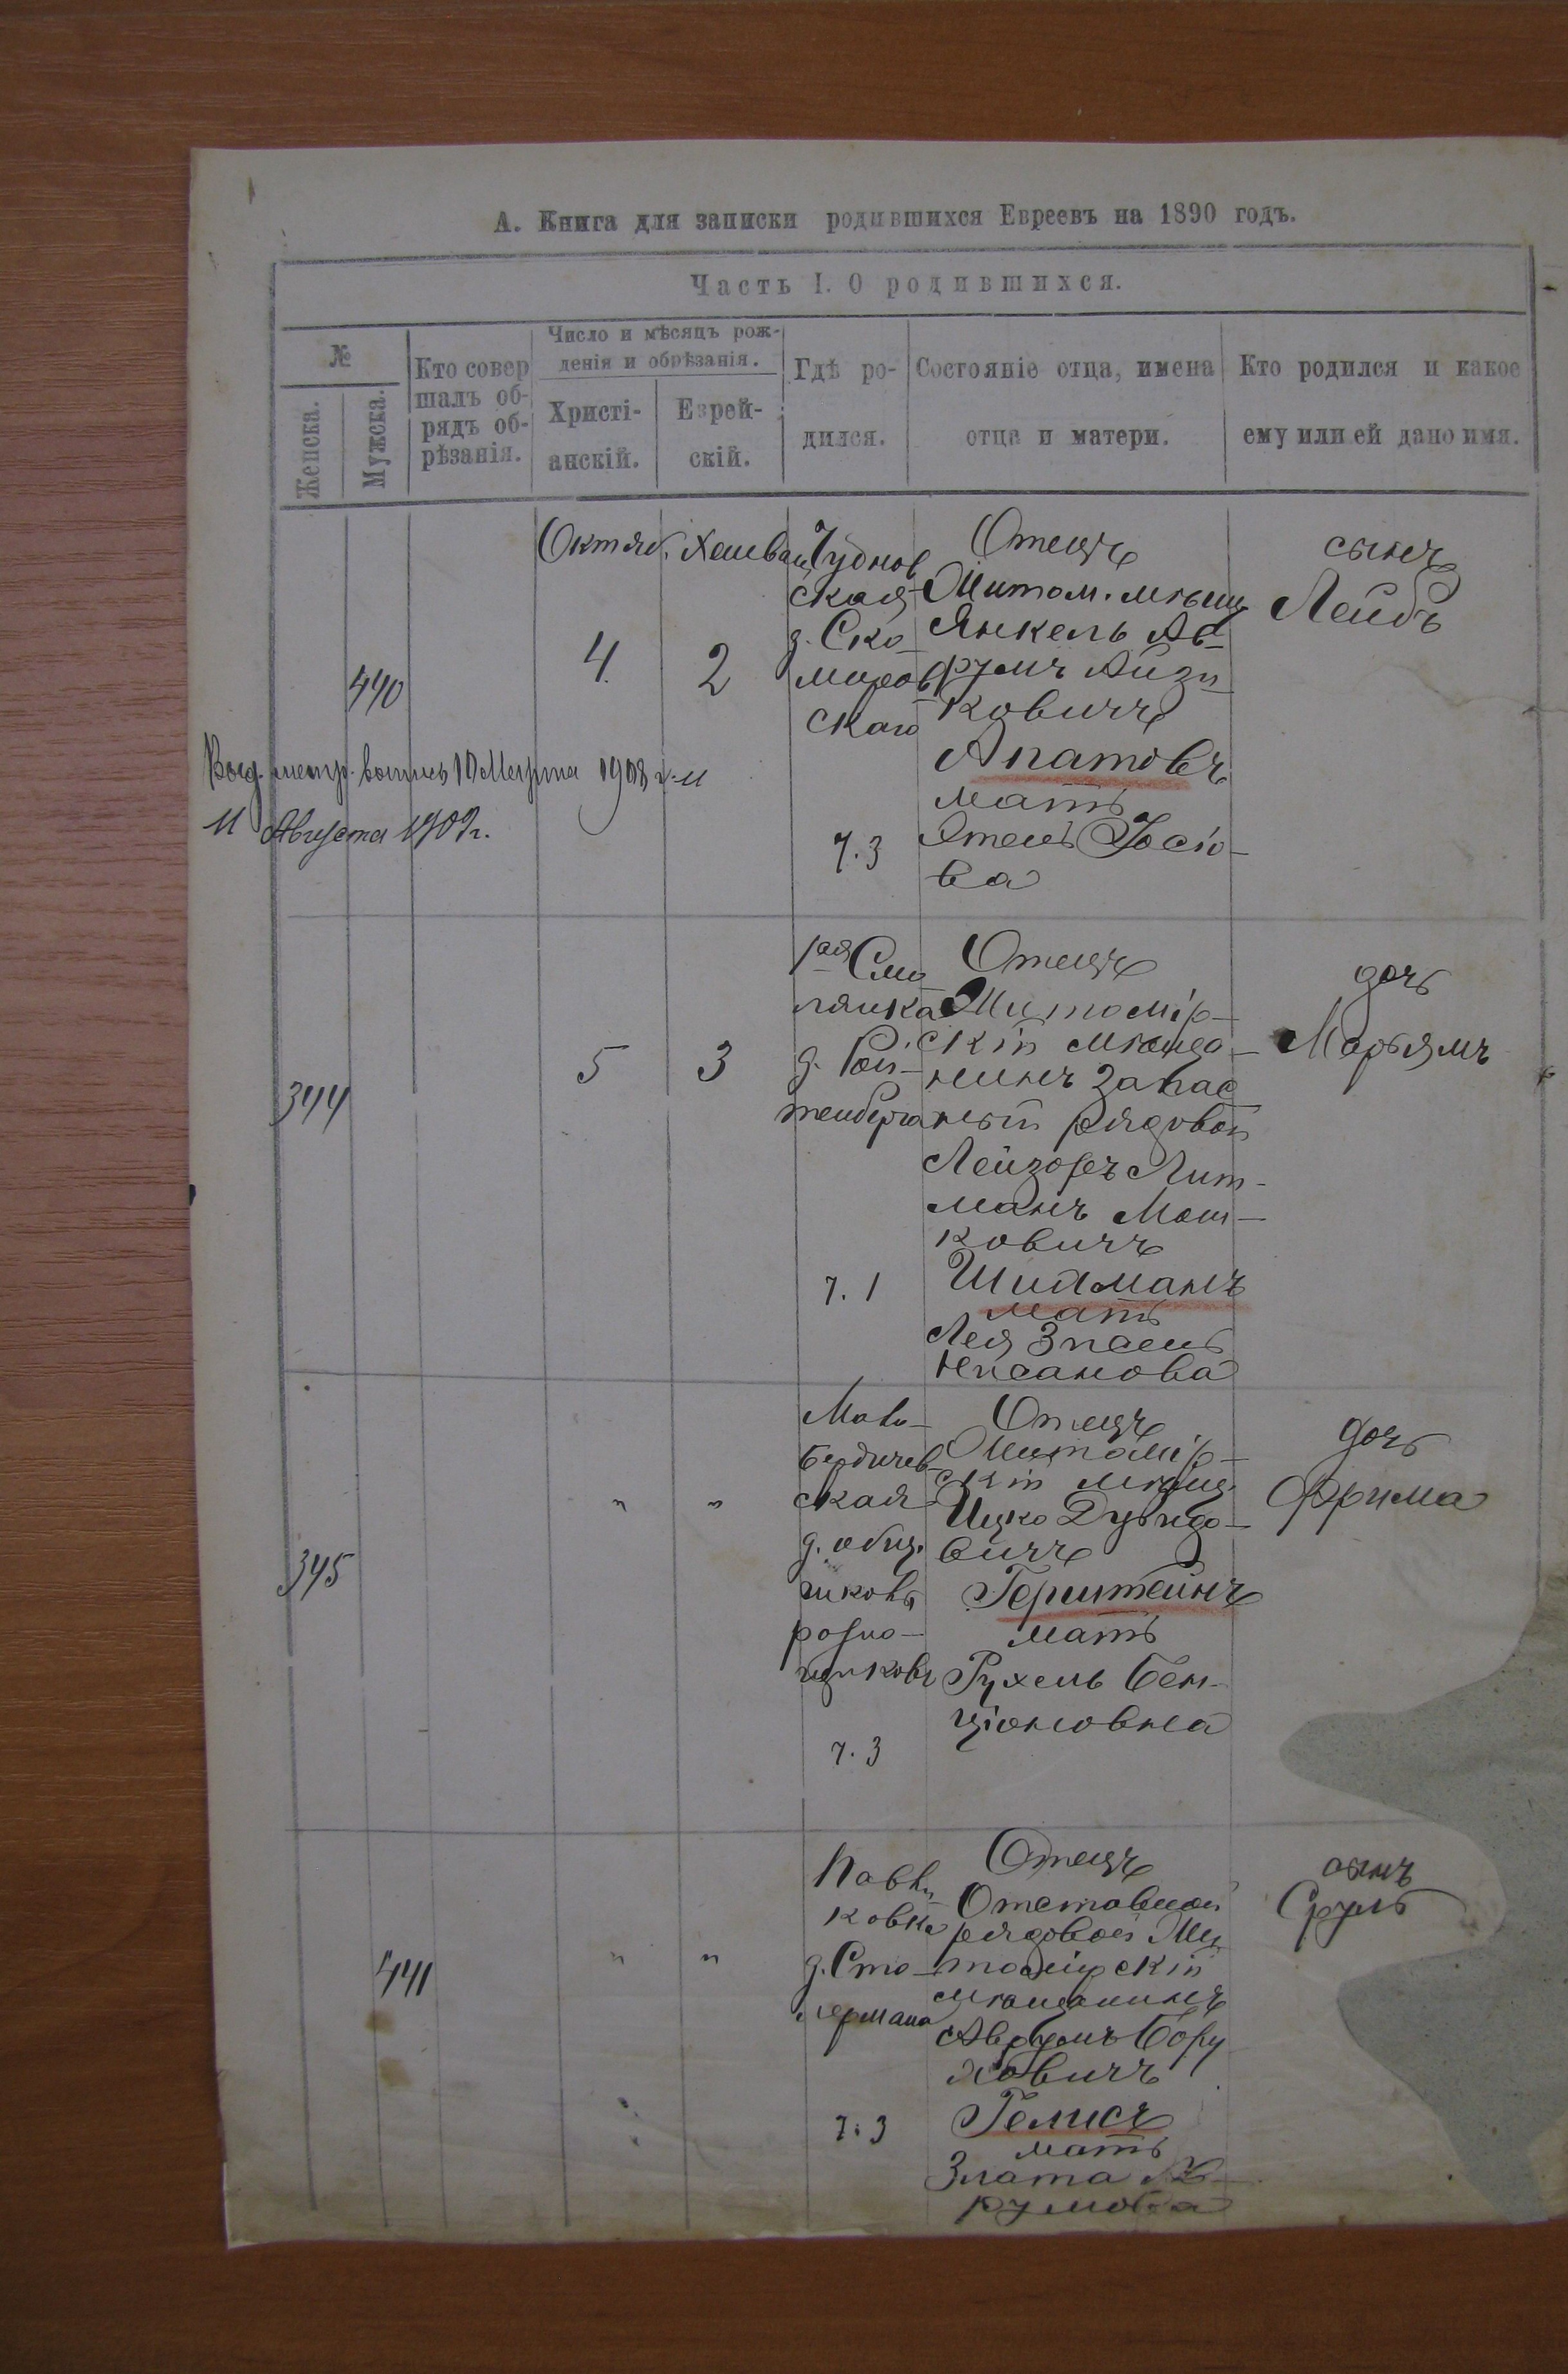 А. Книга для записки родившихся Евреевъ на 1890 годъ.
Часть I. О родившихся.
№
Женска.
Мужска.
Кто совер
шалъ об-
рядъ об-
рѣзанія.
Число и мѣсяцъ рож-
денія и обрѣзанія.
Христі-
анскій.
Еврей-
скій.
Гдѣ ро-
дился.
Состояніе отца, имена
отца и матери.
Кто родился и какое
ему или ей дано имя.
440
Октяб.
4
Хешван
2
Чуднов
ская
д. Ско
маров
скаго
ч. 3
Отецъ
Житом. мѣщ
Янкель Ав-
румъ Айзи
ковичъ
Апатовъ
мать
Этель Іосіо-
ва
сынъ
Лейбъ
Выд. метр. выпись 10 Марта 1908 г. и
11 Августа 1909 г.
344
5
3
1ая Смо
лянка
д. Рой-
тенберга
ч. 1
Отецъ
Житомір-
скій мѣща-
нинъ запас
ный рядовой
Лейзоръ Лит-
манъ Мош-
ковичъ
Шильманъ
мать
Лея Злата
Нисанова
дочь
Марьямъ
345
"
"
Мало-
бердичев
ская
д. общ.
ч. 3
Отецъ
Житомір-
скій мѣщ.
Ицко Дувидо-
вичъ
Герштейнъ
мать
Рухель Бен-
ціоновна
дочь
Фрима
441
"
"
Павли
ковка
д. Сто-
лермана
ч. 3
Отецъ
Отставной
рядовой Жи
томірскій
мѣщанинъ
Аврумъ Бору
ховичъ
Гелисъ
мать
Злата
сынъ
Сруль